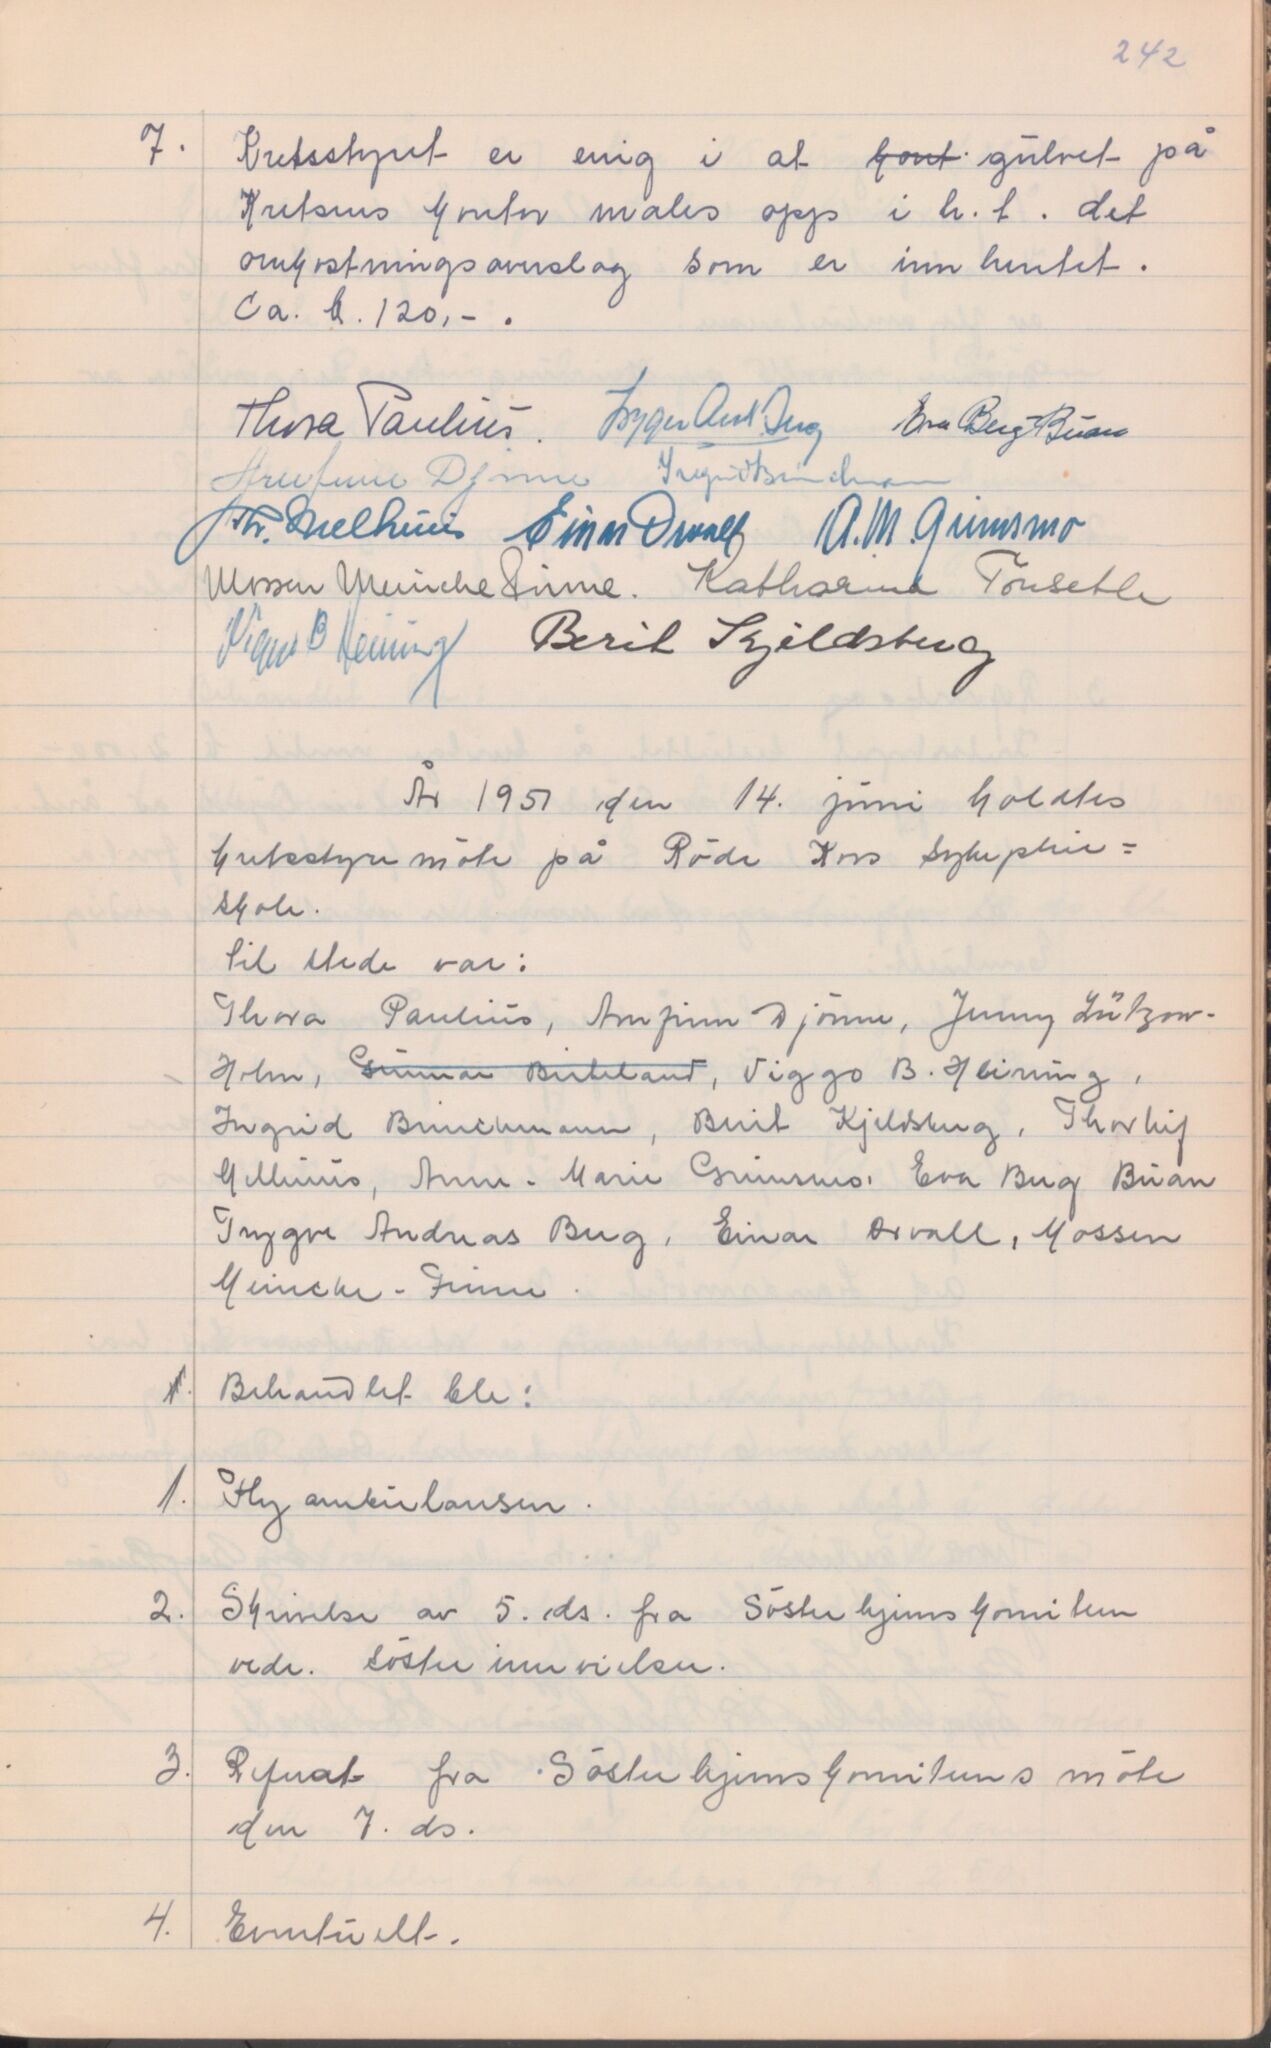 242
7. Kretsstyret er enig i at kont. gülvet på
Kretsens kontor males opp i h.t. det
omkostningsoverslag som er innhentet.
Ca. k. 120,- .
Thora Paulüs. Trygve Andr. Berg Eva Berg Büan
Arnfinn Djönne Ingrid Brinchmann
Th. Melhüüs Einar Orvall A.M. Grimsmo
Mossen Meincke Finne. Katharina Tönseth
Viggo B Heining Berit Kjeldsberg
År 1951 den 14. jüni holdtes
kretsstyremöte på Röde Kors Sykepleie=
skole.
Til stede var:
Thora Paulüs, Arnfinn Djönne, Jenny Lützow-
Holm, Günnar Birkeland, Viggo B. Heining,
Ingrid Brinchmann, Berit Kjeldsberg, Thorleif
Melhüüs, Anne-Marie Grimsmo, Eva Berg Büan
Trygve Andreas Berg, Einar Orvall, Mossen
Meincke-Finne.
1. Behandlet ble:
1. Flyambülansen.
2. Skrivelse av 5. ds. fra Söster hjemskomiteen
vedr. söster innvielser.
3. Referat fra Söster hjemskomiteens möte
den 7. ds.
4. Eventüelt.